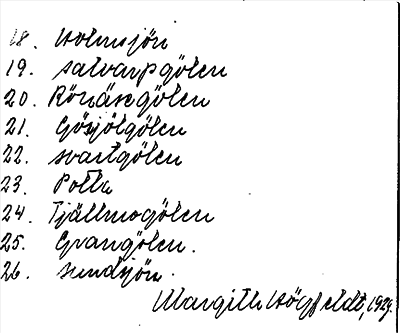 18. Holmsjön
19. salvarpgölen
20. Rönäsegölen
21. Gösjölgölen
22. svartgölen
23. Polla
24. Tjällmogölen
25. Grangölen.
26. sundsjön.
Margith Högfeldt, 1929.